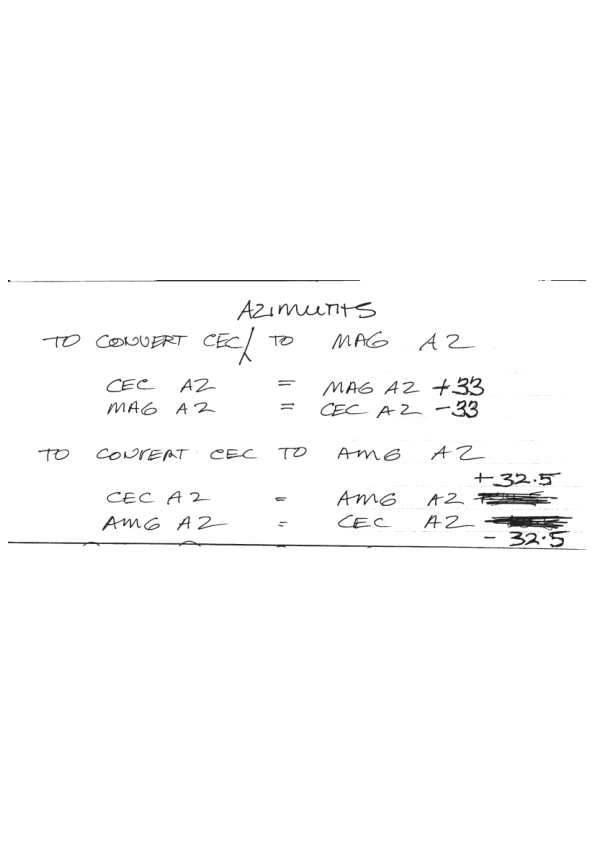 AZIMUTHS
TO CONVERT CEC TO MAG AZ
CEC AZ = MAG AZ +33
MAG AZ = CEC AZ -33
TO CONVERT CEC TO AMG AZ
+32.5
CEC AZ = AMG AZ
AMG AZ = CEC AZ
- 32.5